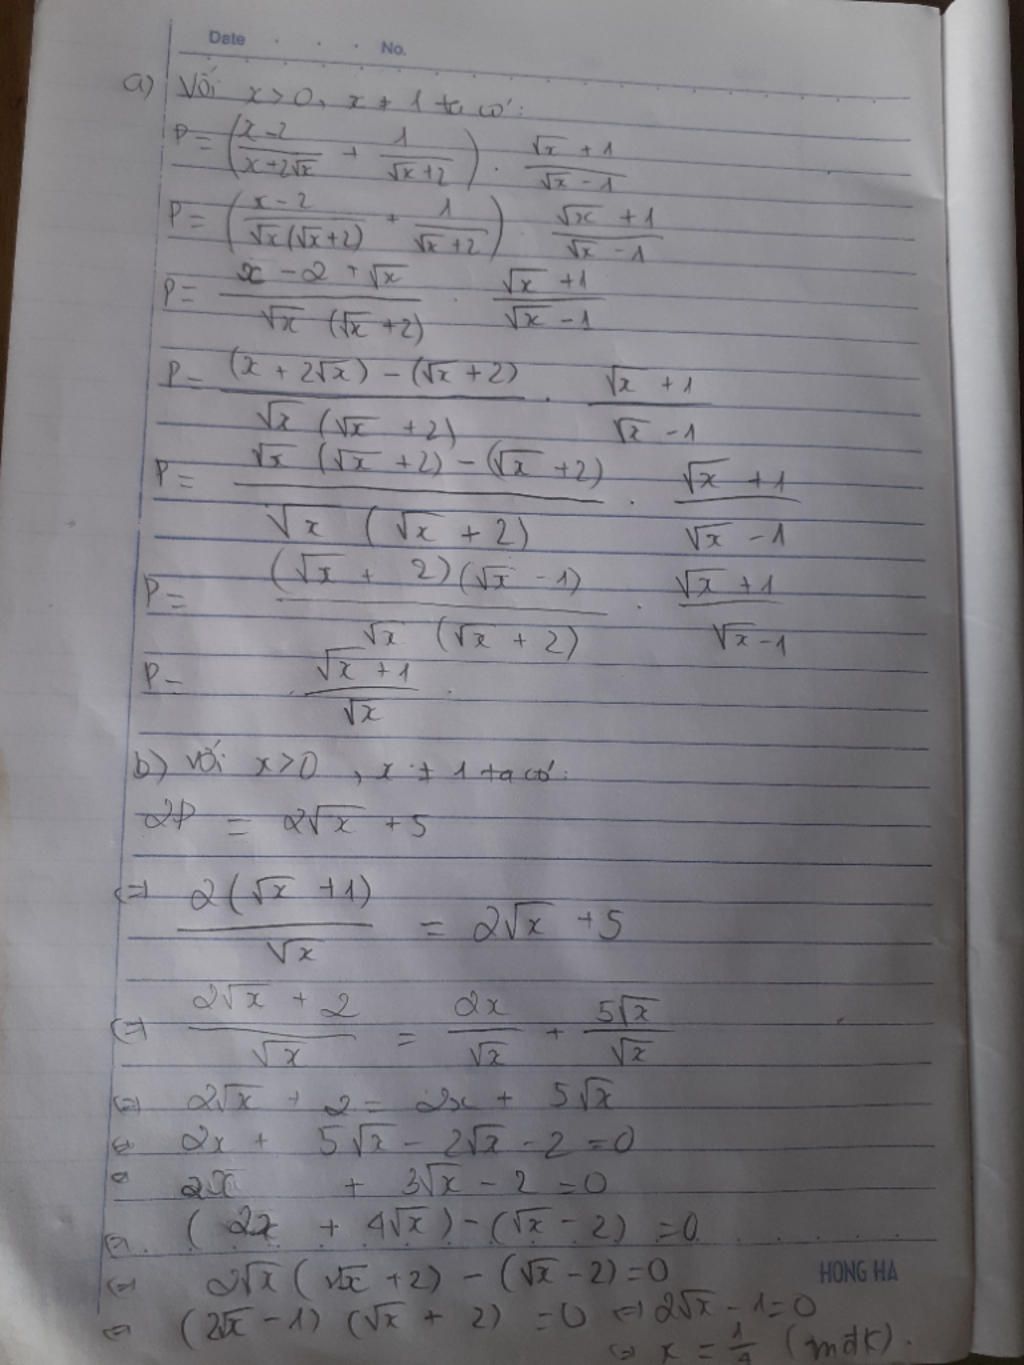 Date . . . No.
a) Với x > 0, x ≠ 1 ta có:
P = ((x - 2)/(x + 2√x) + 1/(√x + 2)) . (√x + 1)/(√x - 1)
P = ((x - 2)/(√x(√x + 2)) + 1/(√x + 2)) (√x + 1)/(√x - 1)
P = (x - 2 + √x)/(√x (√x + 2)) . (√x + 1)/(√x - 1)
P = ((x + 2√x) - (√x + 2))/(√x (√x + 2)) . (√x + 1)/(√x - 1)
P = (√x (√x + 2) - (√x + 2))/(√x (√x + 2)) . (√x + 1)/(√x - 1)
P = ((√x + 2)(√x - 1))/(√x (√x + 2)) . (√x + 1)/(√x - 1)
P = (√x + 1)/√x .
b) Với x > 0, x ≠ 1 ta có:
2P = 2√x + 5
⇔ 2(√x + 1)/√x = 2√x + 5
⇔ (2√x + 2)/√x = 2x/√x + 5√x/√x
⇔ 2√x + 2 = 2x + 5√x
⇔ 2x + 5√x - 2√x - 2 = 0
⇔ 2x + 3√x - 2 = 0
⇔ (2x + 4√x) - (√x - 2) = 0
⇔ 2√x (√x + 2) - (√x - 2) = 0
HONG HA
⇔ (2√x - 1) (√x + 2) = 0 ⇔ 2√x - 1 = 0
⇔ x = 1/4 (tmđk).